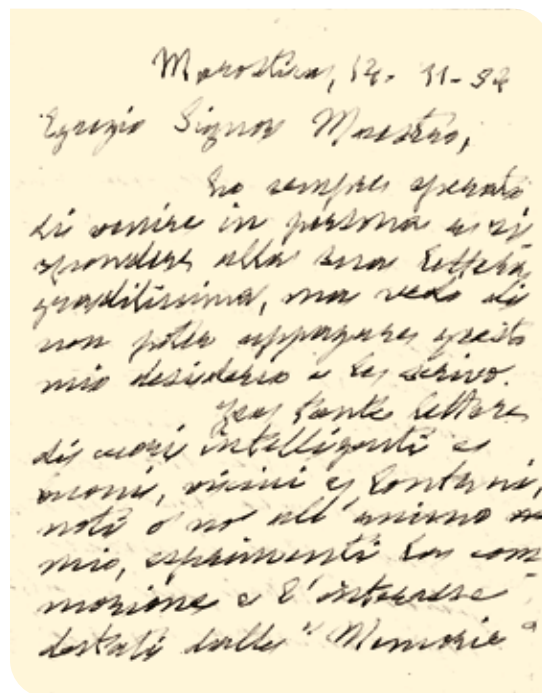 Marostica, 12-11-92
Egregio Signor Maestro,
ho sempre sperato
di venire in persona a ri
spondere alla sua lettera
graditissima, ma vedo di
non poter appagare questo
mio desiderio e le scrivo.
Fra tante lettere
di cuori intelligenti e
buoni, vicini e lontani,
noti o no all'animo
mio, esprimenti la com
mozione e l'interesse
destati dalle "Memorie"